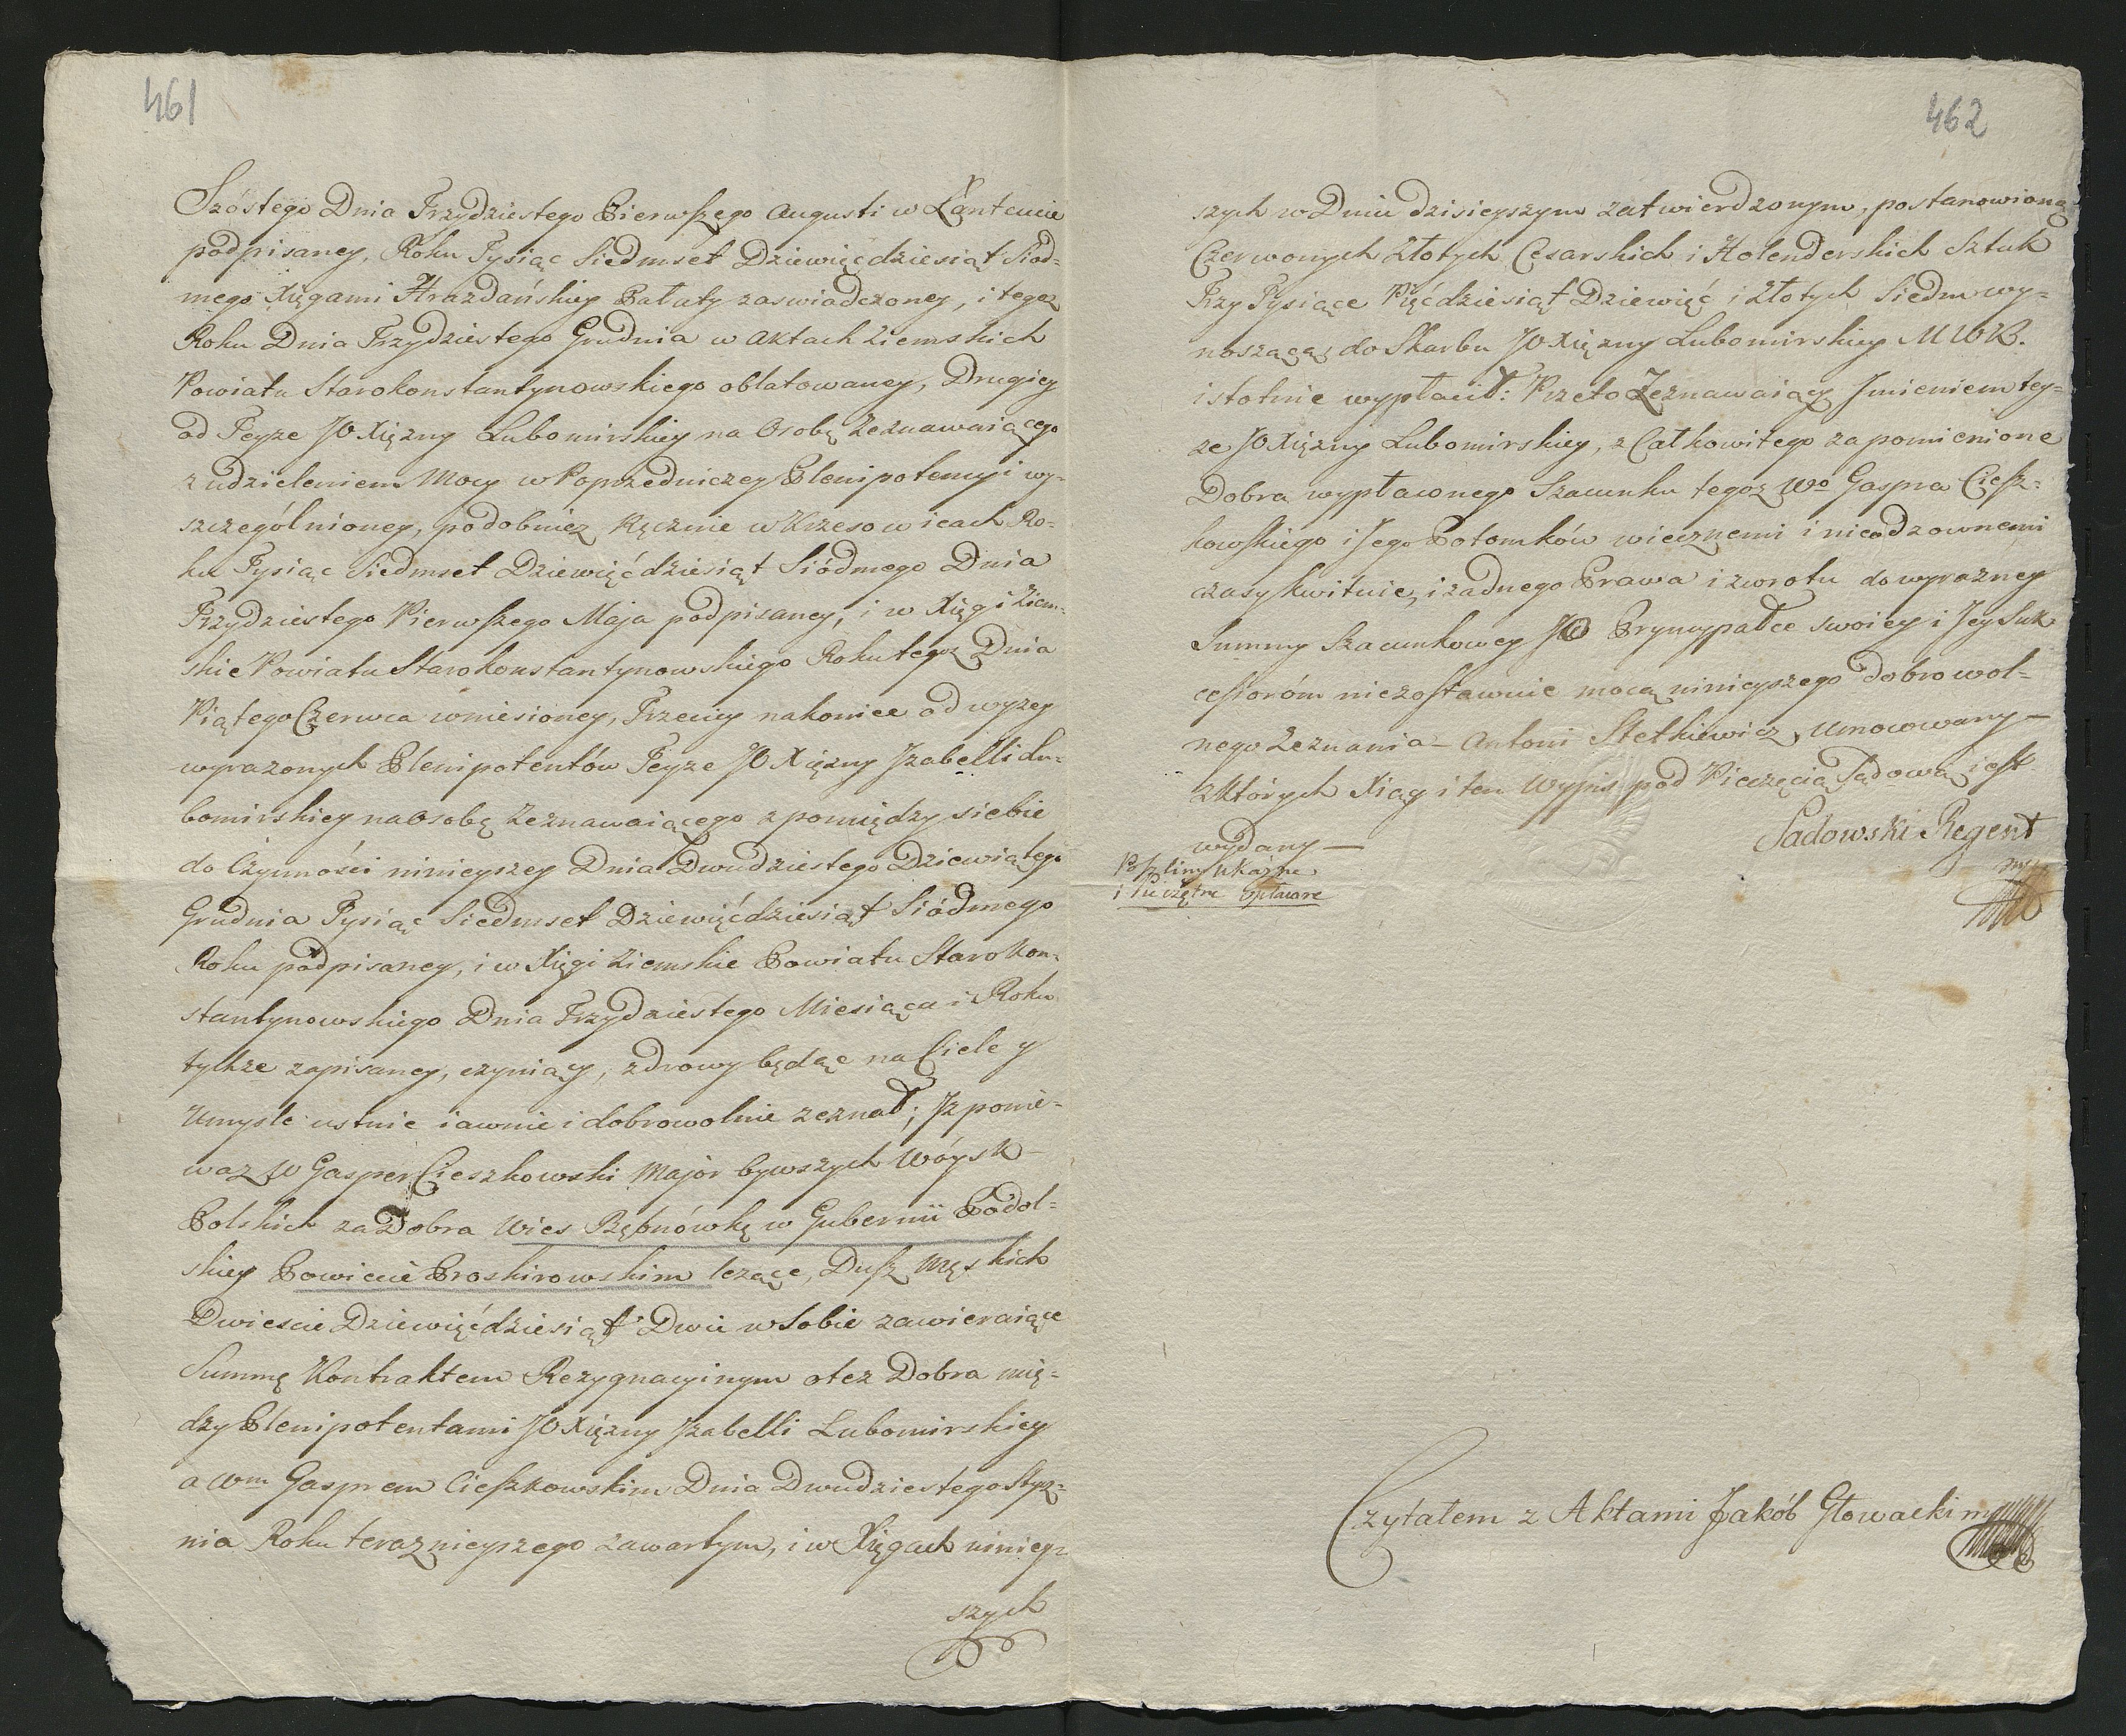 461
Szóstego Dnia Trzydziestego Pierwszego Augusti w Łańcucie
podpisaney, Roku Tysiąc Siedmset Dziewięćdziesiąt Siód-
mego Xięgami Hrazdańskiey Pałaty zaswiadczoney, i tegoż
Roku Dnia Trzydziestego Grudnia w Aktach Ziemskich
Powiatu Starokonstantynowskiego oblatowaney, Drugiey
od Teyze JO Xiężny Lubomirskiey na Osobę Zeznawaiącego
z udzieleniem Mocy w Poprzedniczey Plenipotencyi wy-
szczególnioney, podobniez Ręcznie w Krzesowicach Ro-
ku Tysiąc Siedmset Dziewięćdziesiąt Siódmego Dnia
Trzydziestego Pierwszego Maja podpisaney, i w Xięgi Ziem-
skie Powiatu Starokonstantynowskiego Roku tegoż Dnia
Piątego Czerwca wniesioney, Trzeciey nakoniec od wyzey
wyrazonych Plenipotentów Teyze JO Xiężny Jzabelli Lu-
bomirskiey na Osobę Zeznawaiącego z pomiędzy siebie
do Czynności ninieyszey Dnia Dwudziestego Dziewiątego
Grudnia Tysiąc Siedmset Dziewięćdziesiąt Siódmego
Roku podpisaney, i w Xięgi Ziemskie Powiatu Starokon-
stantynowskiego Dnia Trzydziestego Miesiąca i Roku
tychze zapisaney, czyniący, zdrowy będąc na Ciele y
Umysle ustnie iawnie i dobrowolnie zeznał; Jz ponie-
waz W Gasper Cieszkowski Major bywszych Wóysk
Polskich za Dobra Wies Rębnówkę w Gubernii Podol-
skiey Powiecie Proskirowskim lezące, Dusz Męskich
Dwiescie Dziewięćdziesiąt Dwie w Sobie zawieraiące
Summę Kontraktem Rezygnacyinym o tez Dobra mię-
dzy Plenipotentami JO Xiężny Jzabelli Lubomirskiey
a Wm Gasprem Cieszkowskim Dnia Dwudziestego Stycz-
nia Roku teraznieyszego zawartym, i w Xięgach niniey-
szych
462
szych w Dniu dzisieyszym zatwierdzonym, postanowioną
Czerwonych Złotych Cesarskich i Holenderskich Sztuk
Trzy Tysiące Pięćdziesiąt Dziewięć i Złotych Siedm wy-
noszącą, do Skarbu JO Xiężny Lubomirskiey MWK.
istotnie wypłacił: Przeto Zeznawaiący Jmieniem tey-
ze JO Xiężny Lubomirskiey, z Całkowitego za pomienione
Dobra wypłaconego Szacunku tegoz Wo Gaspra Ciesz-
kowskiego i Jego Potomków wiecznemi i nieodzownemi
czasy kwituie, i zadnego Prawa i zwrotu do wyrazney
Summy Szacunkowey JO Pryncypałce swoiey i Jey Suk-
cessorom niezostawuie mocą ninieyszego dobrowol-
nego Zeznania - Antoni Stetkiewicz, Umocowany -
z których Xiąg i ten Wypis pod Pieczęcią Sądową iest
wydany -
Sadowski Regent
mp
i Pieczętne opłacone
Czytałem z Aktami Jakób Głowacki mp